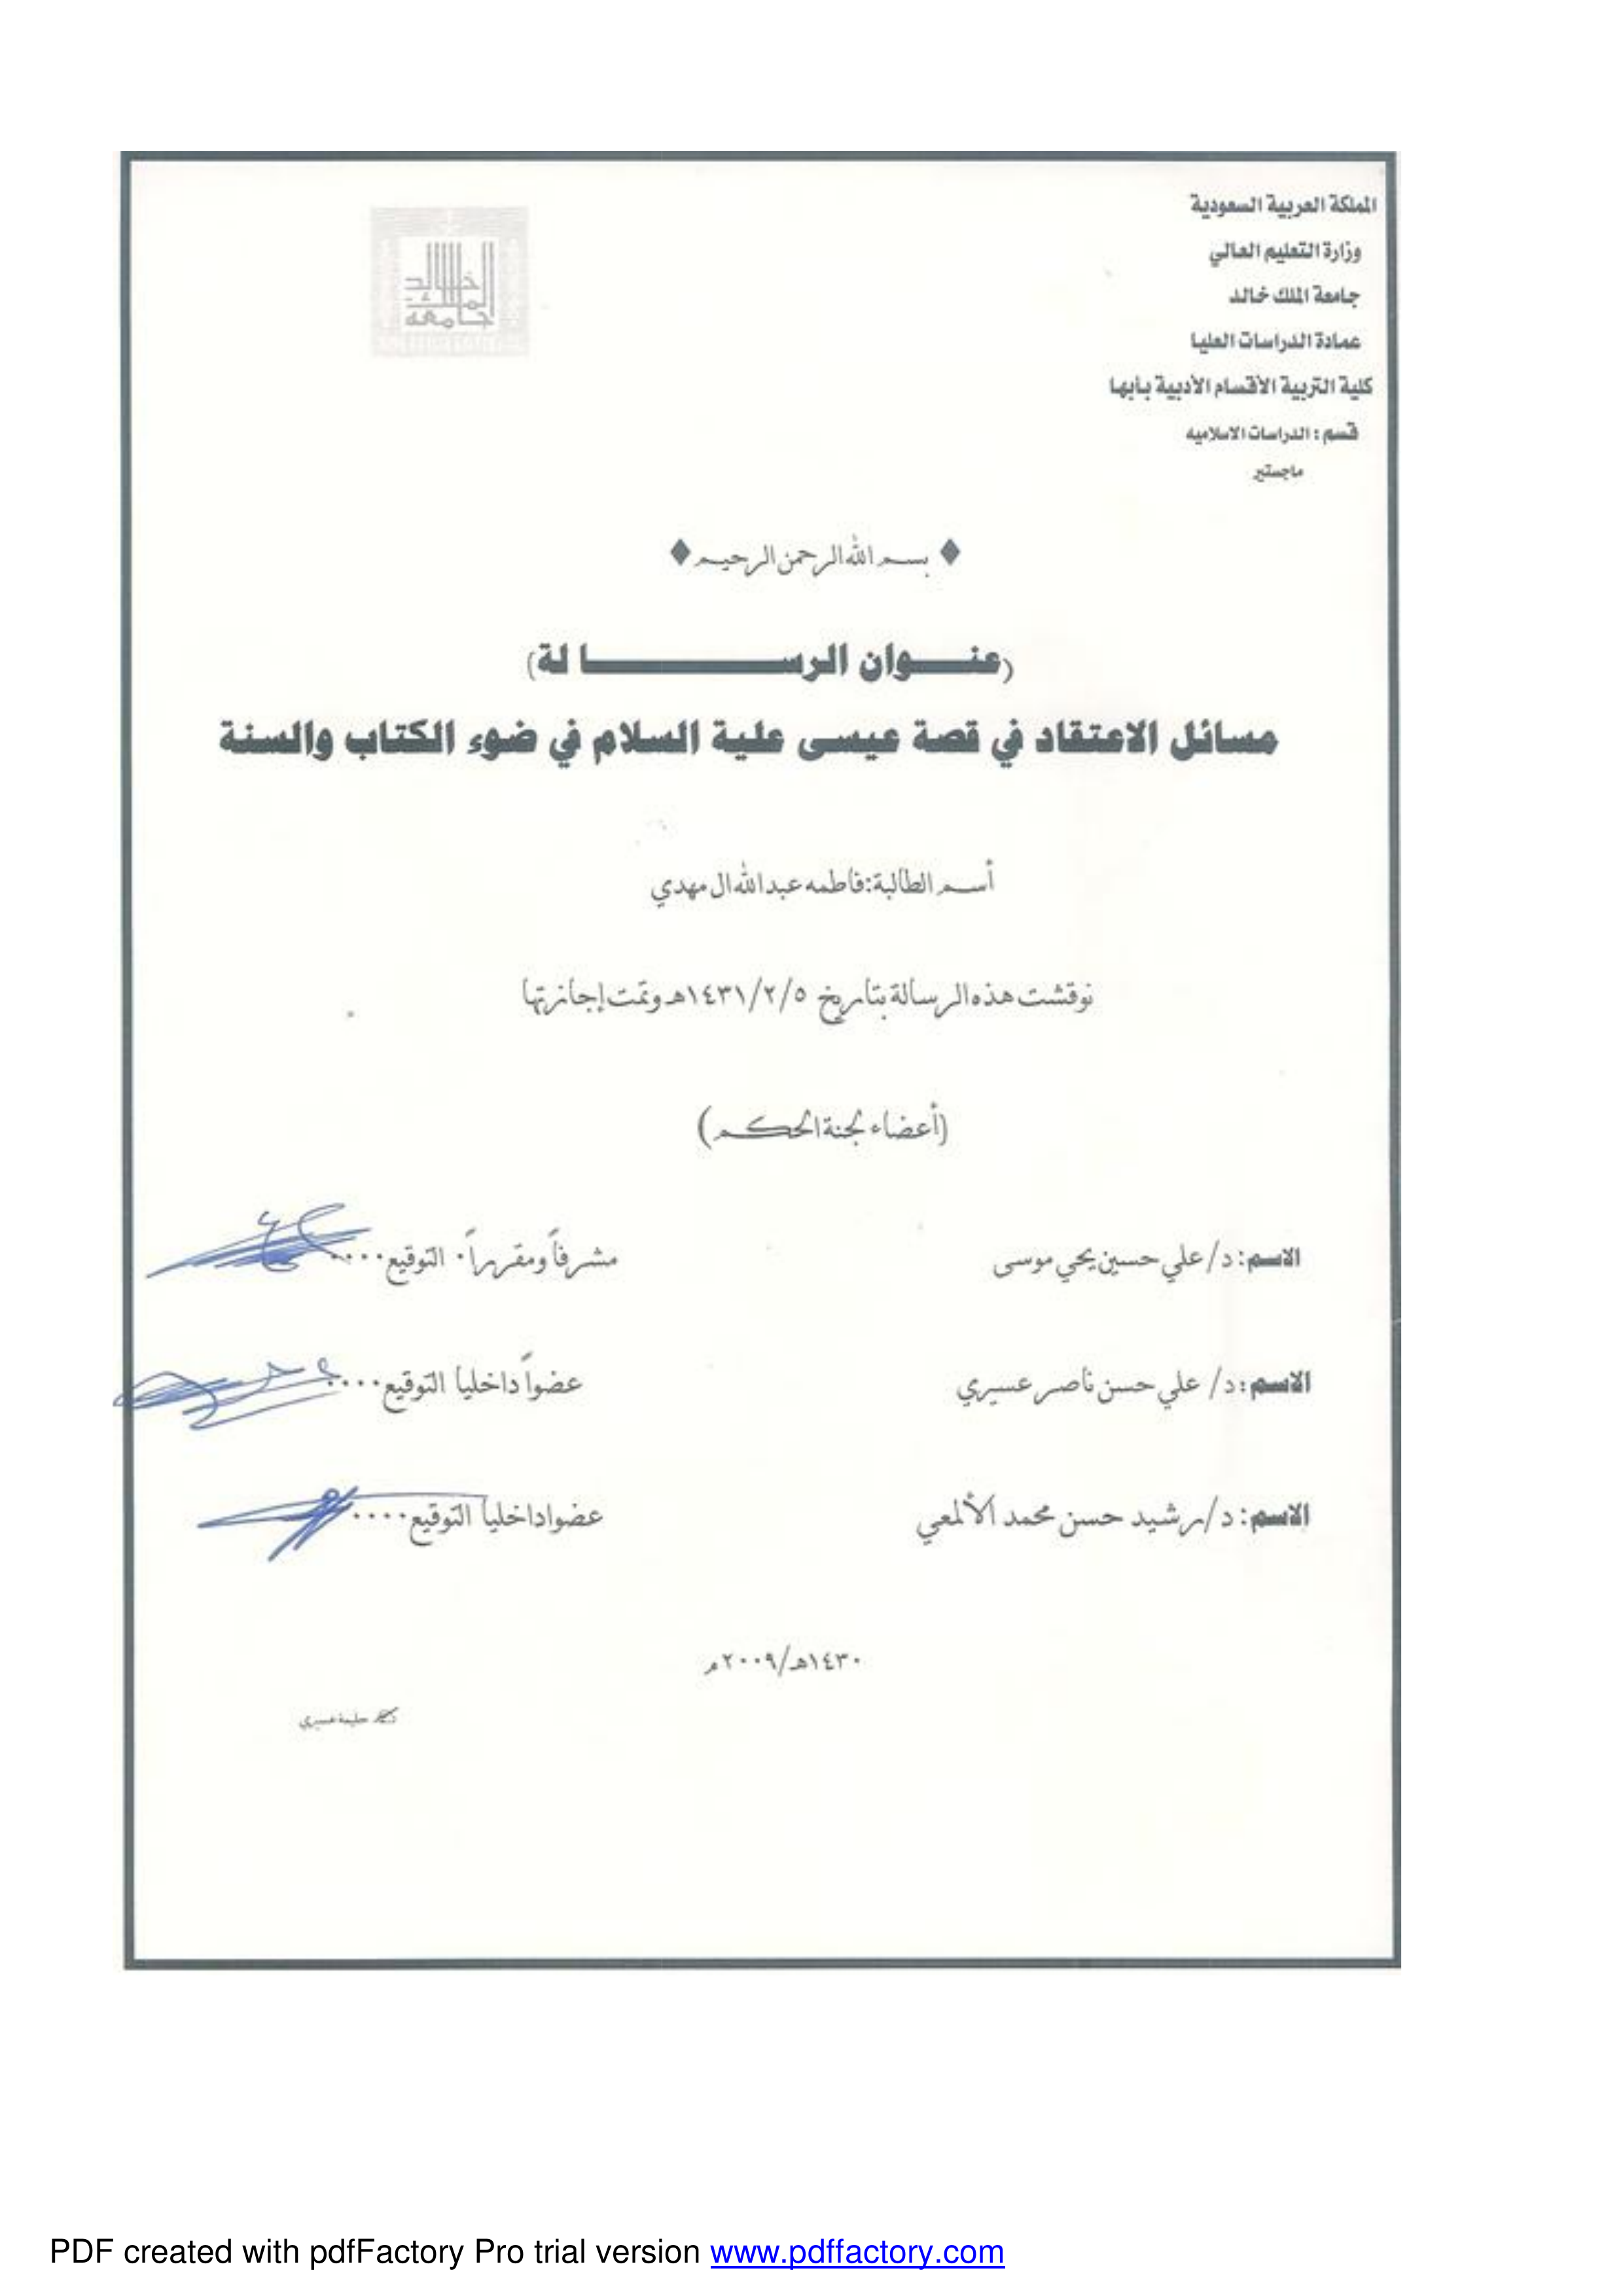 المملكة العربية السعودية
وزارة التعليم العالي
جامعة الملك خالد
عمادة الدراسات العليا
كلية التربية الأقسام الأدبية بأبها
قسم : الدراسات الاسلاميه
ماجستير
جامعة الملك خالد
♦ بسم الله الرحمن الرحيم ♦
(عنـــوان الرســـــــــا لة)
مسائل الاعتقاد في قصة عيسى علية السلام في ضوء الكتاب والسنة
أسم الطالبة:فاطمه عبدالله ال مهدي
نوقشت هذه الرسالة بتاريخ ١٤٣١/٢/٥هـ وتمت إجازتها
(أعضاء لجنة الحكم)
الاسم : د/ علي حسين يحي موسى مشرفاً ومقرراً٠ التوقيع٠٠٠٠
الاسم : د/ علي حسن ناصر عسيري عضواً داخليا التوقيع٠٠٠٠
الاسم : د/ رشيد حسن محمد الألمعي عضوا داخليا التوقيع٠٠٠٠
١٤٣٠هـ/٢٠٠٩م
حليمة عسيري
PDF created with pdfFactory Pro trial version www.pdffactory.com